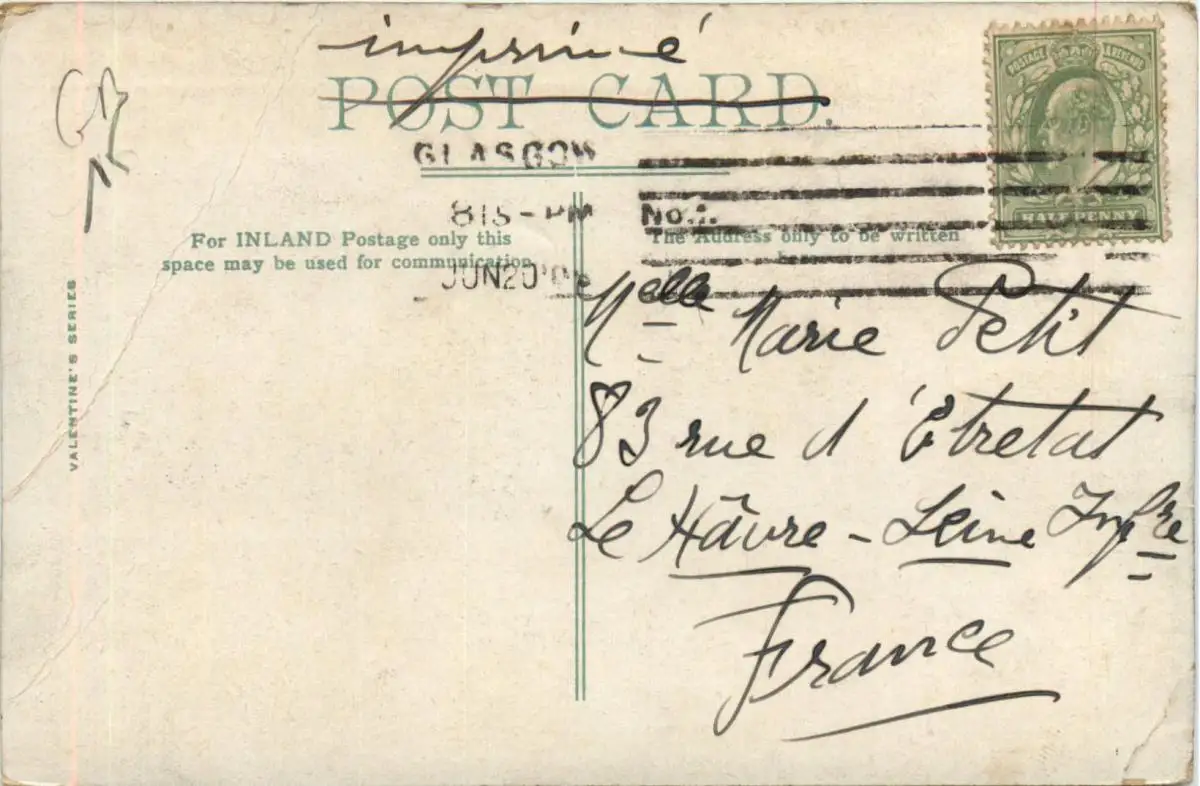 imprimé
POST CARD.
GLASGOW
815-PM No.1.
JUN20
POSTAGE
HALFPENNY
For INLAND Postage only this
space may be used for communication.
The Address only to be written
VALENTINE'S SERIES
Melle Marie Petit
83 rue d'Étretat
Le Hâvre - Seine Infre
France